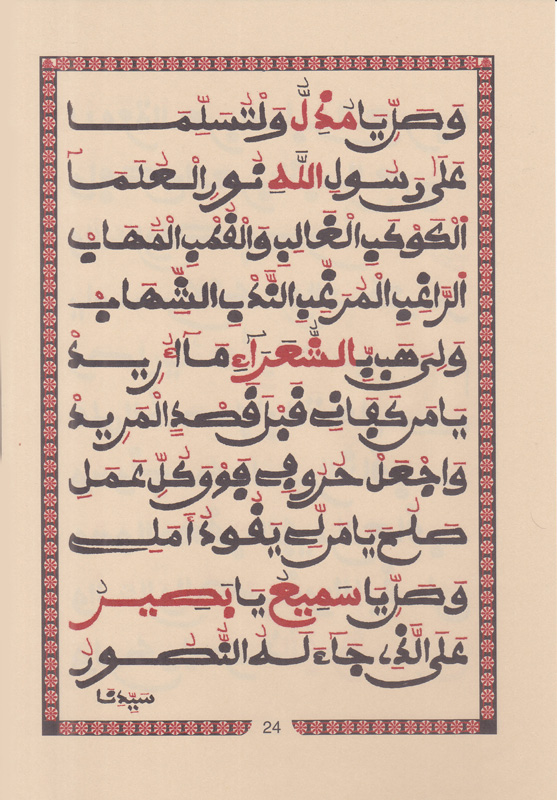 وَصَلِّ يَا مُذِلُّ وَلْتُسَلِّمَا
عَلَى رَسُولِ اللَّهِ نُورِ الْعُلَمَا
اَلْكَوْكَبِ الْغَالِبِ وَالْقُطْبِ الْمُهَابْ
اَلرَّاغِبِ الْمُرَغِّبِ النَّدْبِ الشِّهَابْ
وَلِيَ هَبْ بِالشُّعَرَآءِ مَآ أُرِيدْ
يَا مَن كَفَانِي قَبْلُ قَصْدَ الْمَرِيدْ
وَاجْعَلْ حُرُوفِي فَوْقَ كُلِّ عَمَلِ
صَلُحَ يَا مَن لِي يَقُودُ أَمَلِي
وَصَلِّ يَا سَمِيعُ يَا بَصِيرُ
عَلَى الَّذِي جَآءَ لَهُ
سَيِّدِنَا
24